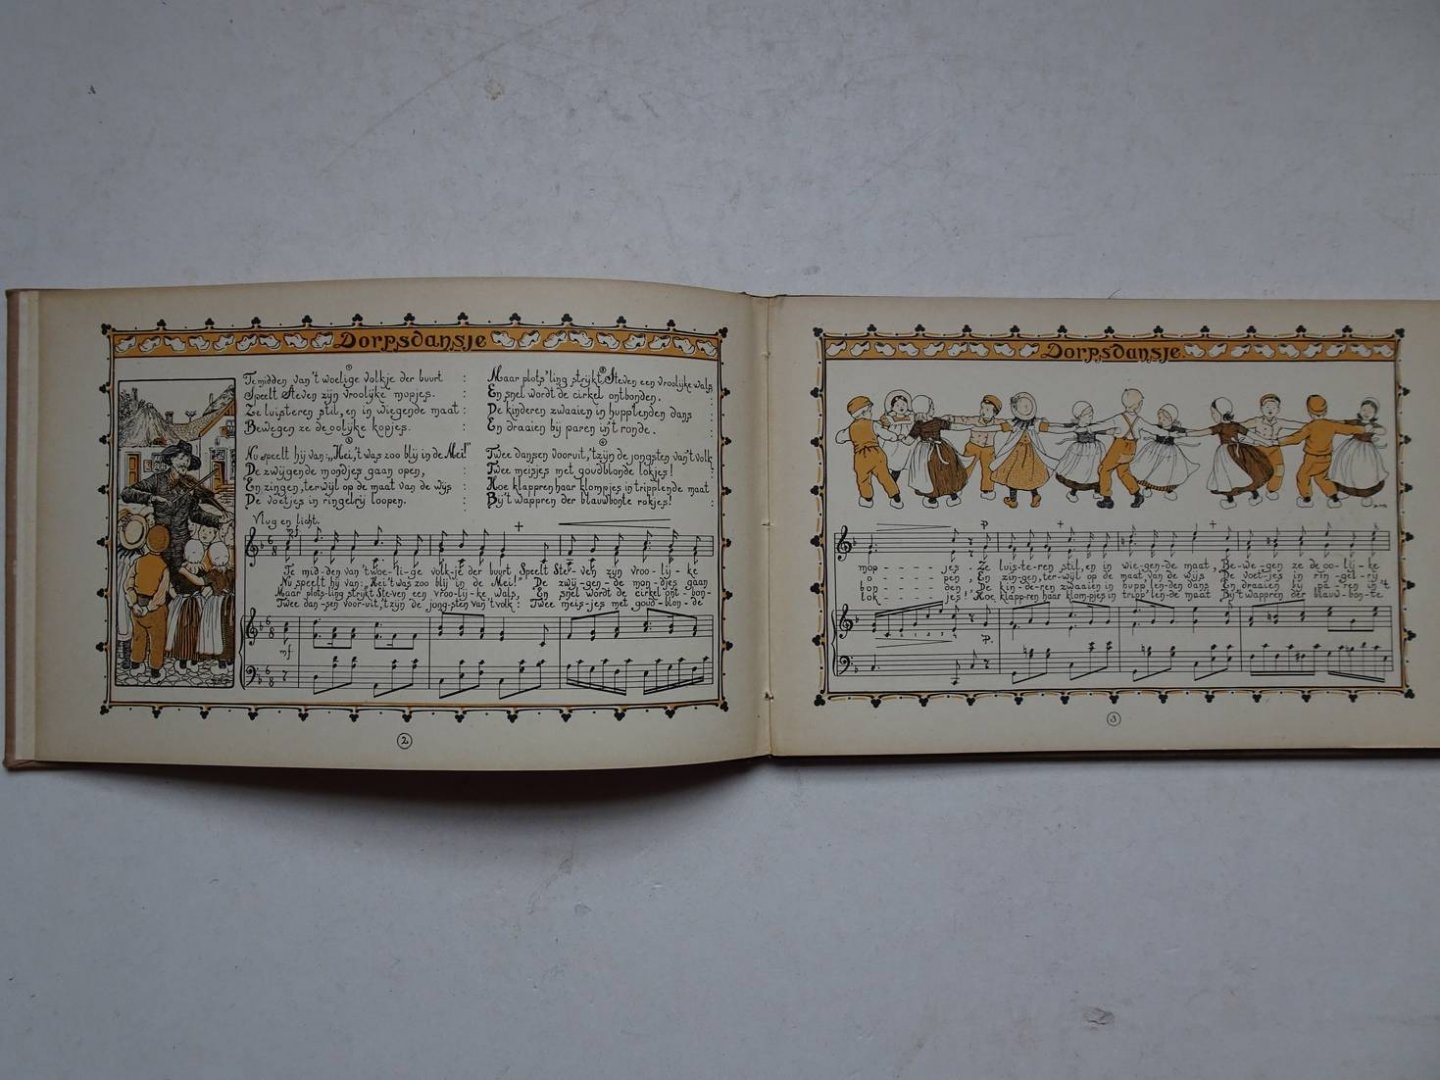 Dorpsdansje
1
Te midden van 't woelige volkje der buurt :
Speelt Steven zijn vroolijke mopjes. :
Ze luisteren stil, en in wiegende maat :
Bewegen ze de oolijke kopjes. :
Nu speelt hij van: „Hei, 't was zoo blij in de Mei!"
De zwijgende mondjes gaan open, :
En zingen, terwijl op de maat van de wijs :
De voetjes in ringelrij loopen. :
Maar plots'ling strijkt Steven een vroolijke wals,
En snel wordt de cirkel ontbonden. :
De kinderen zwaaien in hupplenden dans :
En draaien bij paren in 't ronde. :
4
Twee dansen vooruit, 't zijn de jongsten van 't volk :
Twee meisjes met goudblonde lokjes! :
Hoe klapperen haar klompjes in tripplende maat
Bij 't wappren der blauwbonte rokjes! :
Vlug en licht.
mf
Te mid den van 't woe-li-ge volk-je der buurt Speelt Ste-ven zijn vroo-lij-ke
Nu speelt hij van: „Hei 't was zoo blij in de Mei!" De zwij-gen-de mon-djes gaan
Maar plots-ling strijkt Steven een vroo-lij-ke wals, En snel wordt de cirkel ont-bon-
Twee dan-sen voor-uit, 't zijn de jong-sten van 't volk : Twee meis-jes met goud-blon-de
mf
2
Dorpsdansje
p
mop - - - - jes - Ze luis-te-ren stil, en in wie-gen-de maat, Be-we-gen ze de oo-lij-ke
o - - - - pen, En zin-gen, ter-wijl op de maat van de wijs De voet-jes in rin-gel-rij
bon - - - - den De kin-de-ren zwaaien in hupp len-den dans En draaien bij pa-ren in 't
lok - - - - jes! Hoe klapp-ren haar klom-pjes in tripp'len-de maat Bij 't wappren der blauw-bon-te
p.
3